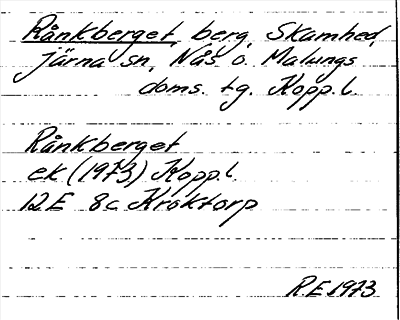 Rånkberget, berg, Skamhed,
Järna sn, Nås o. Malungs
doms. tg. Kopp.l.
Rånkberget
ek (1973) Kopp.l.
12E 8c Kroktorp
R.E 1973